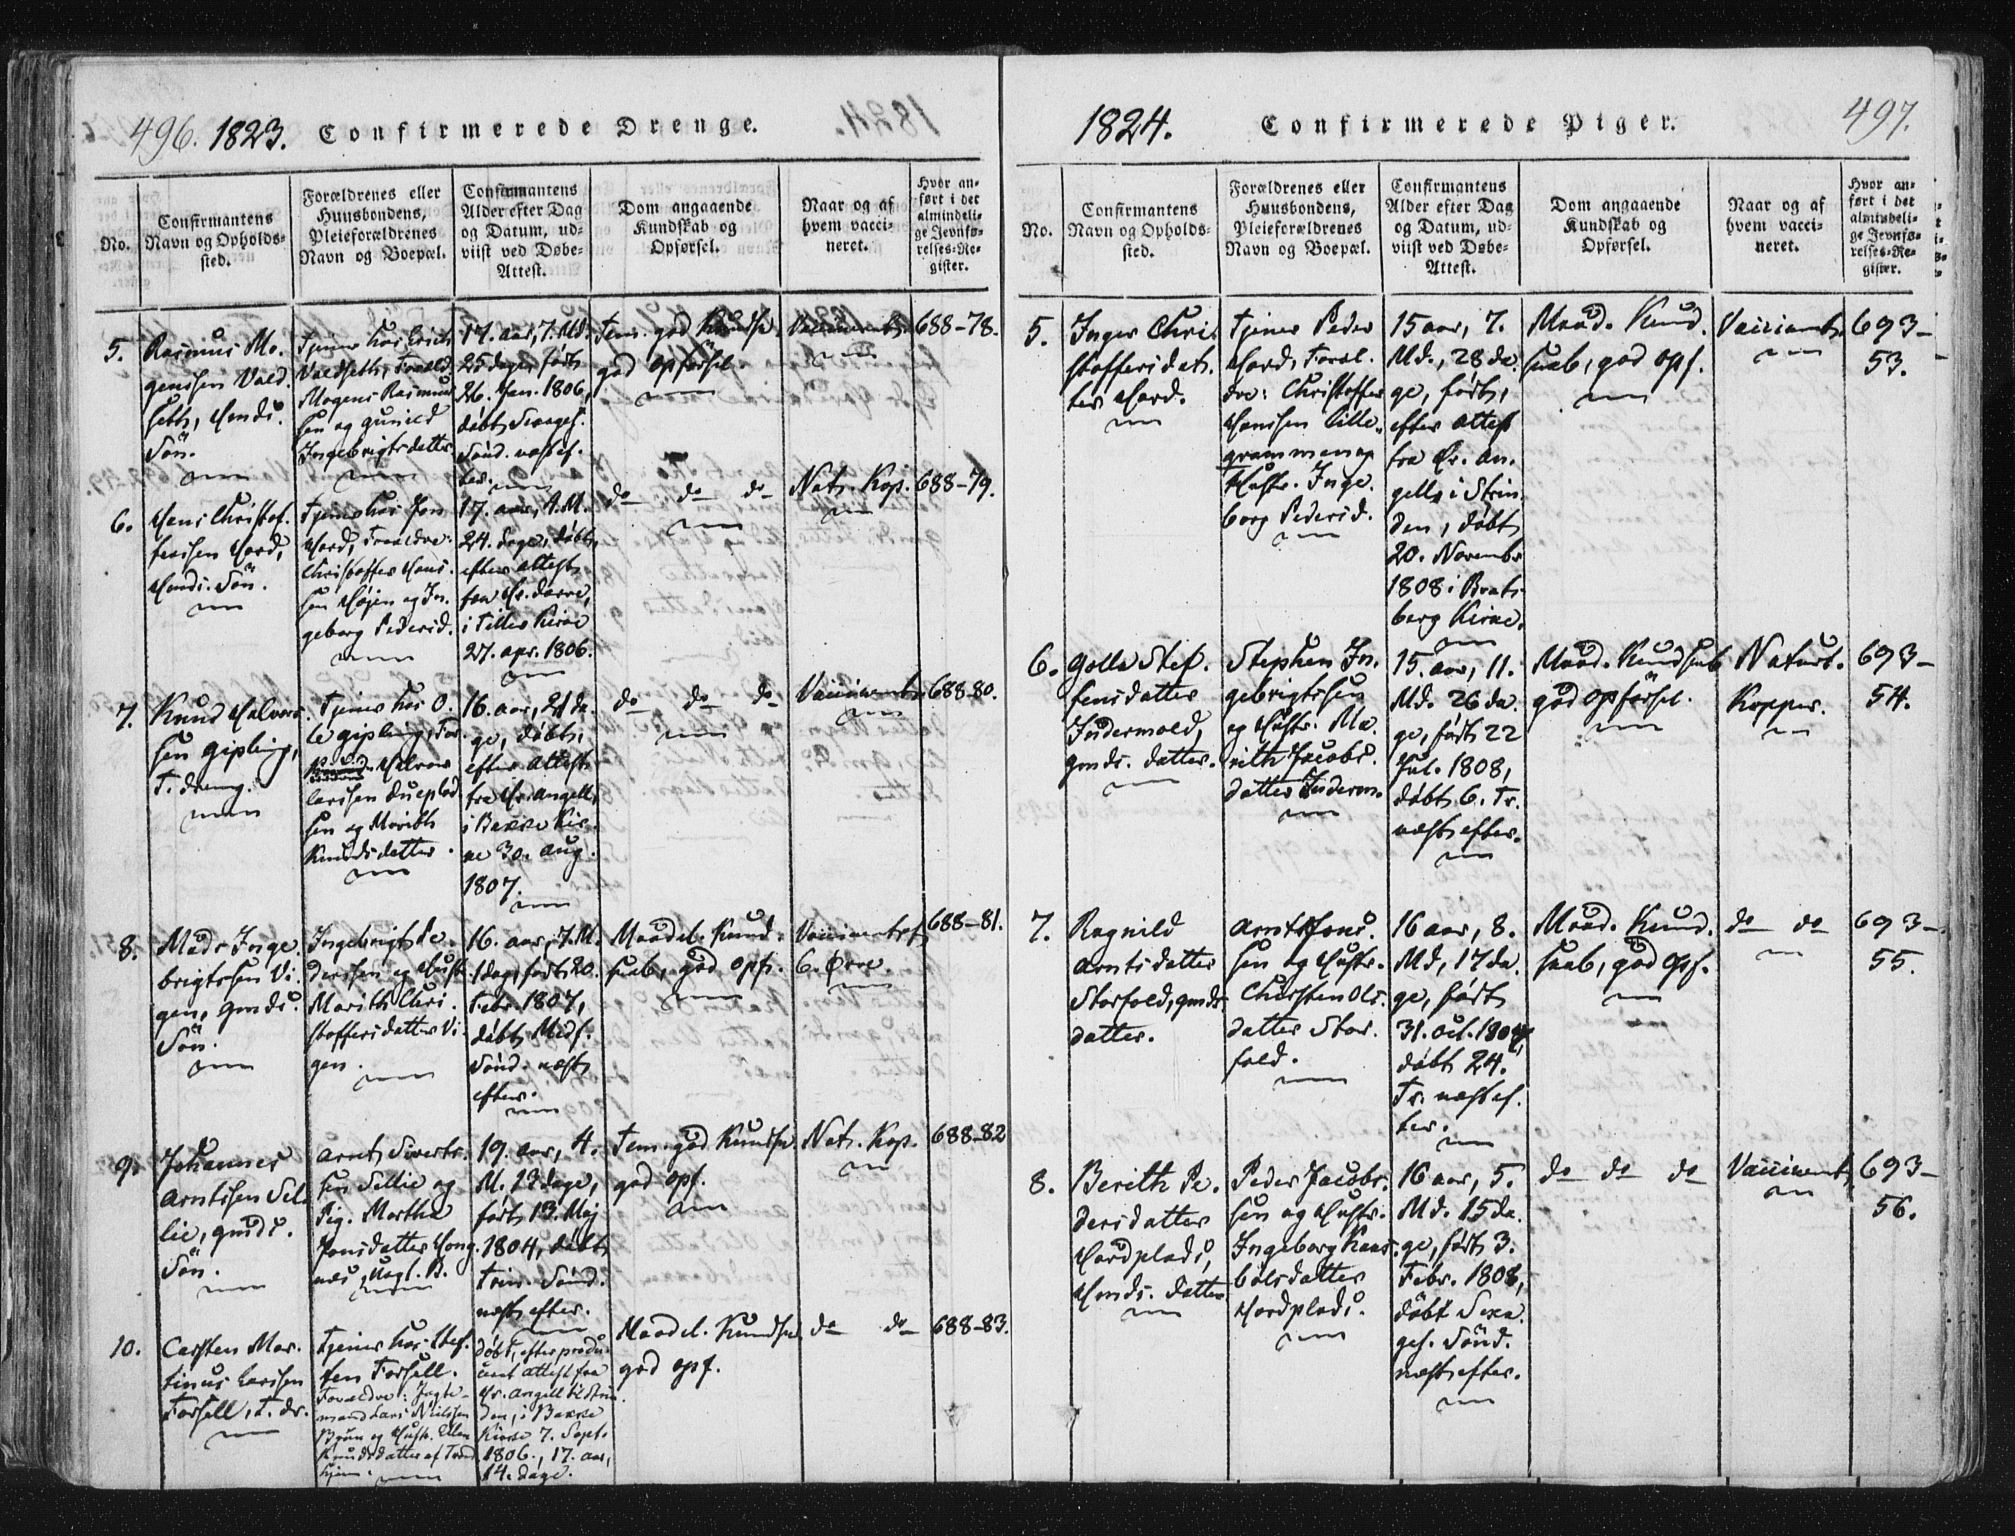 496. 1823. Confirmerede Drenge.
No.
Confirmantens
Navn og Opholds-
sted.
Forældrenes eller
Huusbondens,
Pleieforældrenes
Navn og Boepæl.
Confirmantens
Alder efter Dag
og Datum, ud-
viist ved Døbe-
Attest.
Dom angaaende
Kundskab og
Opførsel.
Naar og af
hvem vacci-
neret.
Hvor an-
ført i det
almindeli-
ge Jevnfø-
relses-Re-
gister.
5.
Rasmus Mo-
genssen Vald-
seth, Gmds.
Søn.
Tjener hos Erich
Valdseth, Foræld.
Mogens Rasmus
sen og Gunild
Ingebrigtsdatter.
17. aar, 7. Md.
25 dage, født
26. Jan. 1806,
døbt Sexages.
Sønd. næst ef-
ter.
Tem. god Kundsk.
god opførsel
Vaccineret.
688-78.
6.
Hans Christof-
fersen Hard,
Gmds. Søn.
Tjener hos Jon
Hard, Forældre:
Christoffer Hans-
sen Højen og In-
geborg Pedersd.
24. dage, døbt,
efter attest
i Tiller Kirke
27. apr. 1806.
do do do
Nat. Kop.
688-79.
7.
Knud Halvors-
sen Gipling,
T. dreng.
Tjener hos O-
le Gipling, For.
Halvor
Larssen
sen og Marith
Knudsdatter.
16. aar, 21 da-
ge, døbt,
efter attest
fra Hr. Angell,
i Bakke Kir-
ke 30. aug.
1807.
do do do
Vaccineret.
688-80.
8.
Mads Inge-
brigtssen Vi-
gen, Gmds.
Søn.
Ingebrigt Pe-
derssen og Hust.
Marith Chri-
stoffersdatter Vi-
gen.
16. aar, 7. M.
1 dag, født 20.
Febr. 1807,
døbt Midf.
Sønd. næst
efter.
Maadel. Kund-
skab, god opf.
Vaccineret af
C. Ørre.
688-81.
9.
Johannes
Arntssen Sel-
lie, Gmds.
Søn.
Arnt Sivert-
sen Sellie og
Pig. Martha
Jonsdatter Hong-
næs, Uægt. B.
19. aar, 4.
M. 13 dage,
født 13. Maj
1804, døbt
Trin. Sønd.
næst efter.
Tem. god Kundsk.
god opf.
Nat. Kop.
688-82
10.
Carsten Mar-
tinus Larssen
Forsell, T. dr.
Tjener hos Stef-
fen Forsell.
Forældre: Jagte-
mand Lars Nielssen
Bruun og Hustr. Ellen
Knudsdatter af Trond-
hjem.
døbt, efter produ-
ceret attest fra
Hr. Angell til Strin
den, i Bakke
Kirke 7. Sept.
1806, 17. aar,
14. dage.
Maadel. Kundsk.
god opf.
do do
688-83.
1824. Confirmerede Piger. 497.
No.
Confirmantens
Navn og Opholds-
sted.
Forældrenes eller
Huusbondens,
Pleieforældrenes
Navn og Boepæl.
Confirmantens
Alder efter Dag
og Datum, ud-
viist ved Døbe-
Attest.
Dom angaaende
Kundskab og
Opførsel.
Naar og af
hvem vacci-
neret.
Hvor an-
ført i det
almindeli-
ge Jevnfø-
relses-Re-
gister.
5.
Inger Chri-
stoffersdat-
ter Hard.
Tjener Peder
Hard, Foræl-
dre: Christoffer
Hanssen Lille-
grammen og
Hustr. Inge-
borg Pedersd.
15 aar, 7.
Md., 28 da-
ge, født,
efter attest
fra Hr. An-
gell, i Strin
den, døbt
20. Novembr
1808 i Brats-
berg Kirke.
Maad. Kund-
skab, god opf.
Vaccineret.
693-
53.
6.
Golla Stef-
fensdatter
Indermold,
gmds. datter.
Stephen In-
gebrigtssen
og Hustr. Ma-
rith Jacobs-
datter Inderm.
15. aar, 11.
Md. 26 da-
ge, født 22
Jul. 1808,
døbt 6. Tr.
næst efter.
Maad. Kundskab
god opførsel.
Naturl.
Kopper.
693-
54.
7.
Ragnild
Arntsdatter
Storfold, gmds.
datter.
Arnt Jons-
sen og Hustr.
Chirsten Ols-
datter Stor-
fold.
16 aar, 8.
Md, 17 da-
ge, født
31. Oct. 1807,
døbt 24.
Tr. næst ef-
ter.
Maad. Kund-
skab, god opf.
do do
693-
55.
8.
Berith Pe-
dersdatter
Hardplads,
Hmds. datter
Peder Jacobs-
sen og Hustr.
Ingeborg Kaas-
bølsdatter
Hardplads.
16 aar, 5.
Md. 15 da-
ge, født 3.
Febr. 1808,
døbt Sexa-
ges. Sønd.
næst efter.
do do do
Vaccineret,
693-
56.